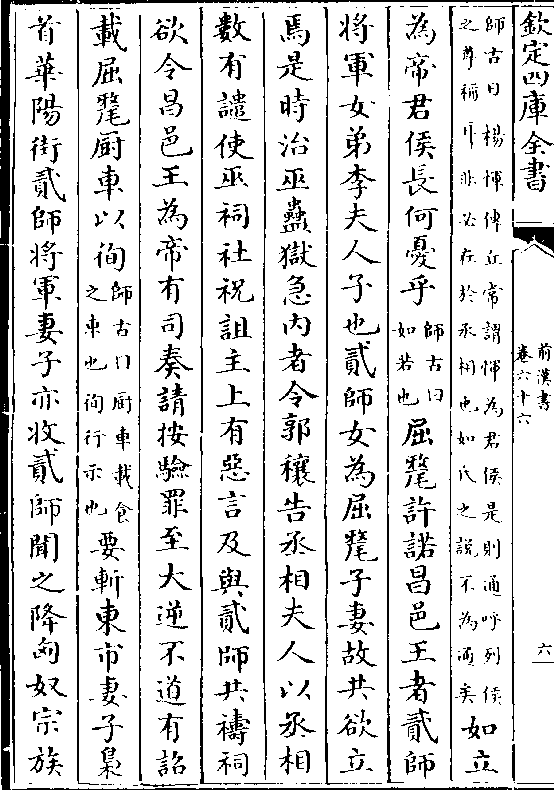 欽定四庫全書
前漢書
卷六十六
六
師古曰楊惲傳丘常謂惲為君侯是則通呼列侯
之尊稱耳非必在於丞相也如氏之說不為通矣
如立
為帝君侯長何憂乎
師古曰
如若也
屈氂許諾昌邑王者貳師
將軍女弟李夫人子也貳師女為屈氂子妻故共欲立
焉是時治巫蠱獄急內者令郭穰告丞相夫人以丞相
數有譴使巫祠社祝詛主上有惡言及與貳師共禱祠
欲令昌邑王為帝有司奏請按驗罪至大逆不道有詔
載屈氂厨車以徇
師古曰厨車載食
之車也徇行示也
要斬東市妻子梟
首華陽街貳師將軍妻子亦收貳師聞之降匈奴宗族